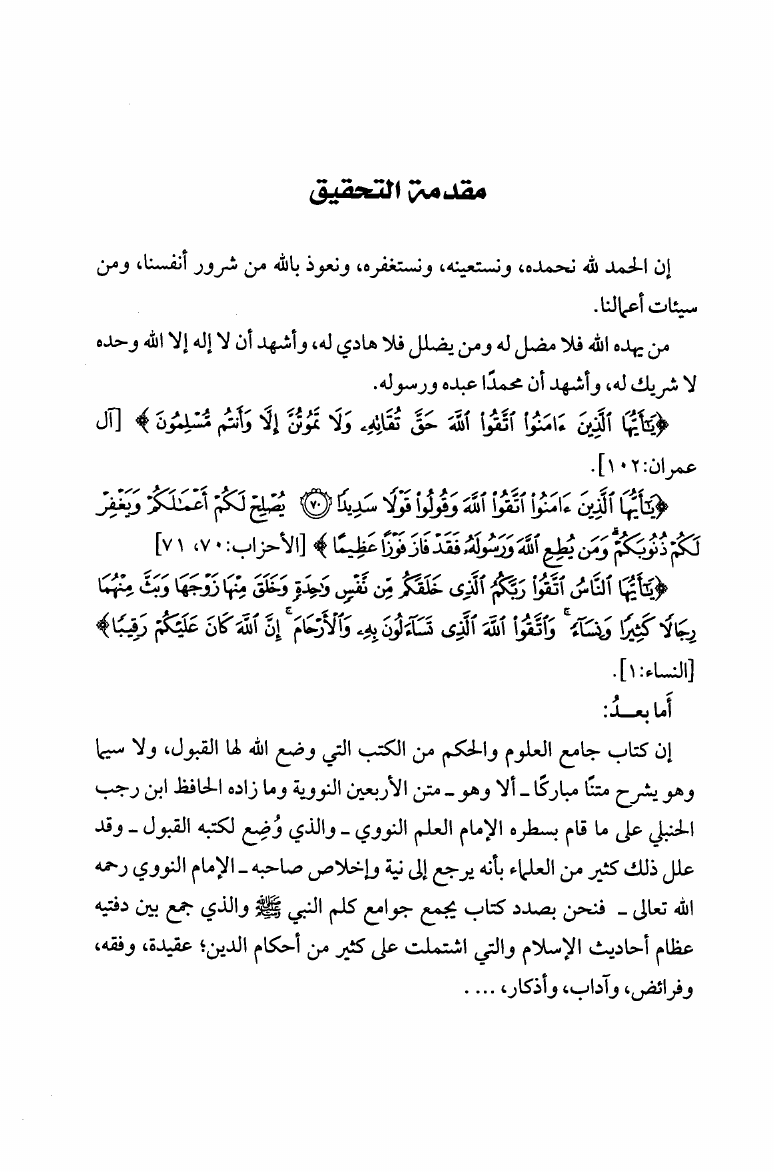 مقدمة التحقيق
إن الحمد لله نحمده، ونستعينه، ونستغفره، ونعوذ بالله من شرور أنفسنا، ومن
سيئات أعمالنا.
من يهده الله فلا مضل له ومن يضلل فلا هادي له، وأشهد أن لا إله إلا الله وحده
لا شريك له، وأشهد أن محمدًا عبده ورسوله.
﴿يَٰٓأَيُّهَا ٱلَّذِينَ ءَامَنُوا۟ ٱتَّقُوا۟ ٱللَّهَ حَقَّ تُقَاتِهِۦ وَلَا تَمُوتُنَّ إِلَّا وَأَنتُم مُّسْلِمُونَ﴾ [آل
عمران:١٠٢].
﴿يَٰٓأَيُّهَا ٱلَّذِينَ ءَامَنُوا۟ ٱتَّقُوا۟ ٱللَّهَ وَقُولُوا۟ قَوْلًا سَدِيدًا ۝٧٠ يُصْلِحْ لَكُمْ أَعْمَٰلَكُمْ وَيَغْفِرْ
لَكُمْ ذُنُوبَكُمْ ۗ وَمَن يُطِعِ ٱللَّهَ وَرَسُولَهُۥ فَقَدْ فَازَ فَوْزًا عَظِيمًا﴾ [الأحزاب:٧٠، ٧١]
﴿يَٰٓأَيُّهَا ٱلنَّاسُ ٱتَّقُوا۟ رَبَّكُمُ ٱلَّذِى خَلَقَكُم مِّن نَّفْسٍ وَٰحِدَةٍ وَخَلَقَ مِنْهَا زَوْجَهَا وَبَثَّ مِنْهُمَا
رِجَالًا كَثِيرًا وَنِسَآءً ۚ وَٱتَّقُوا۟ ٱللَّهَ ٱلَّذِى تَسَآءَلُونَ بِهِۦ وَٱلْأَرْحَامَ ۚ إِنَّ ٱللَّهَ كَانَ عَلَيْكُمْ رَقِيبًا﴾
[النساء:١].
أما بعـــدُ:
إن كتاب جامع العلوم والحكم من الكتب التي وضع الله لها القبول، ولا سيما
وهو يشرح متنًا مباركًا ـ ألا وهو ـ متن الأربعين النووية وما زاده الحافظ ابن رجب
الحنبلي على ما قام بسطره الإمام العلم النووي ـ والذي وُضِع لكتبه القبول ـ وقد
علل ذلك كثير من العلماء بأنه يرجع إلى نية وإخلاص صاحبه ـ الإمام النووي رحمه
الله تعالى ـ فنحن بصدد كتاب يجمع جوامع كلم النبي ﷺ والذي جمع بين دفتيه
عظام أحاديث الإسلام والتي اشتملت على كثير من أحكام الدين؛ عقيدة، وفقه،
وفرائض، وآداب، وأذكار، ... .